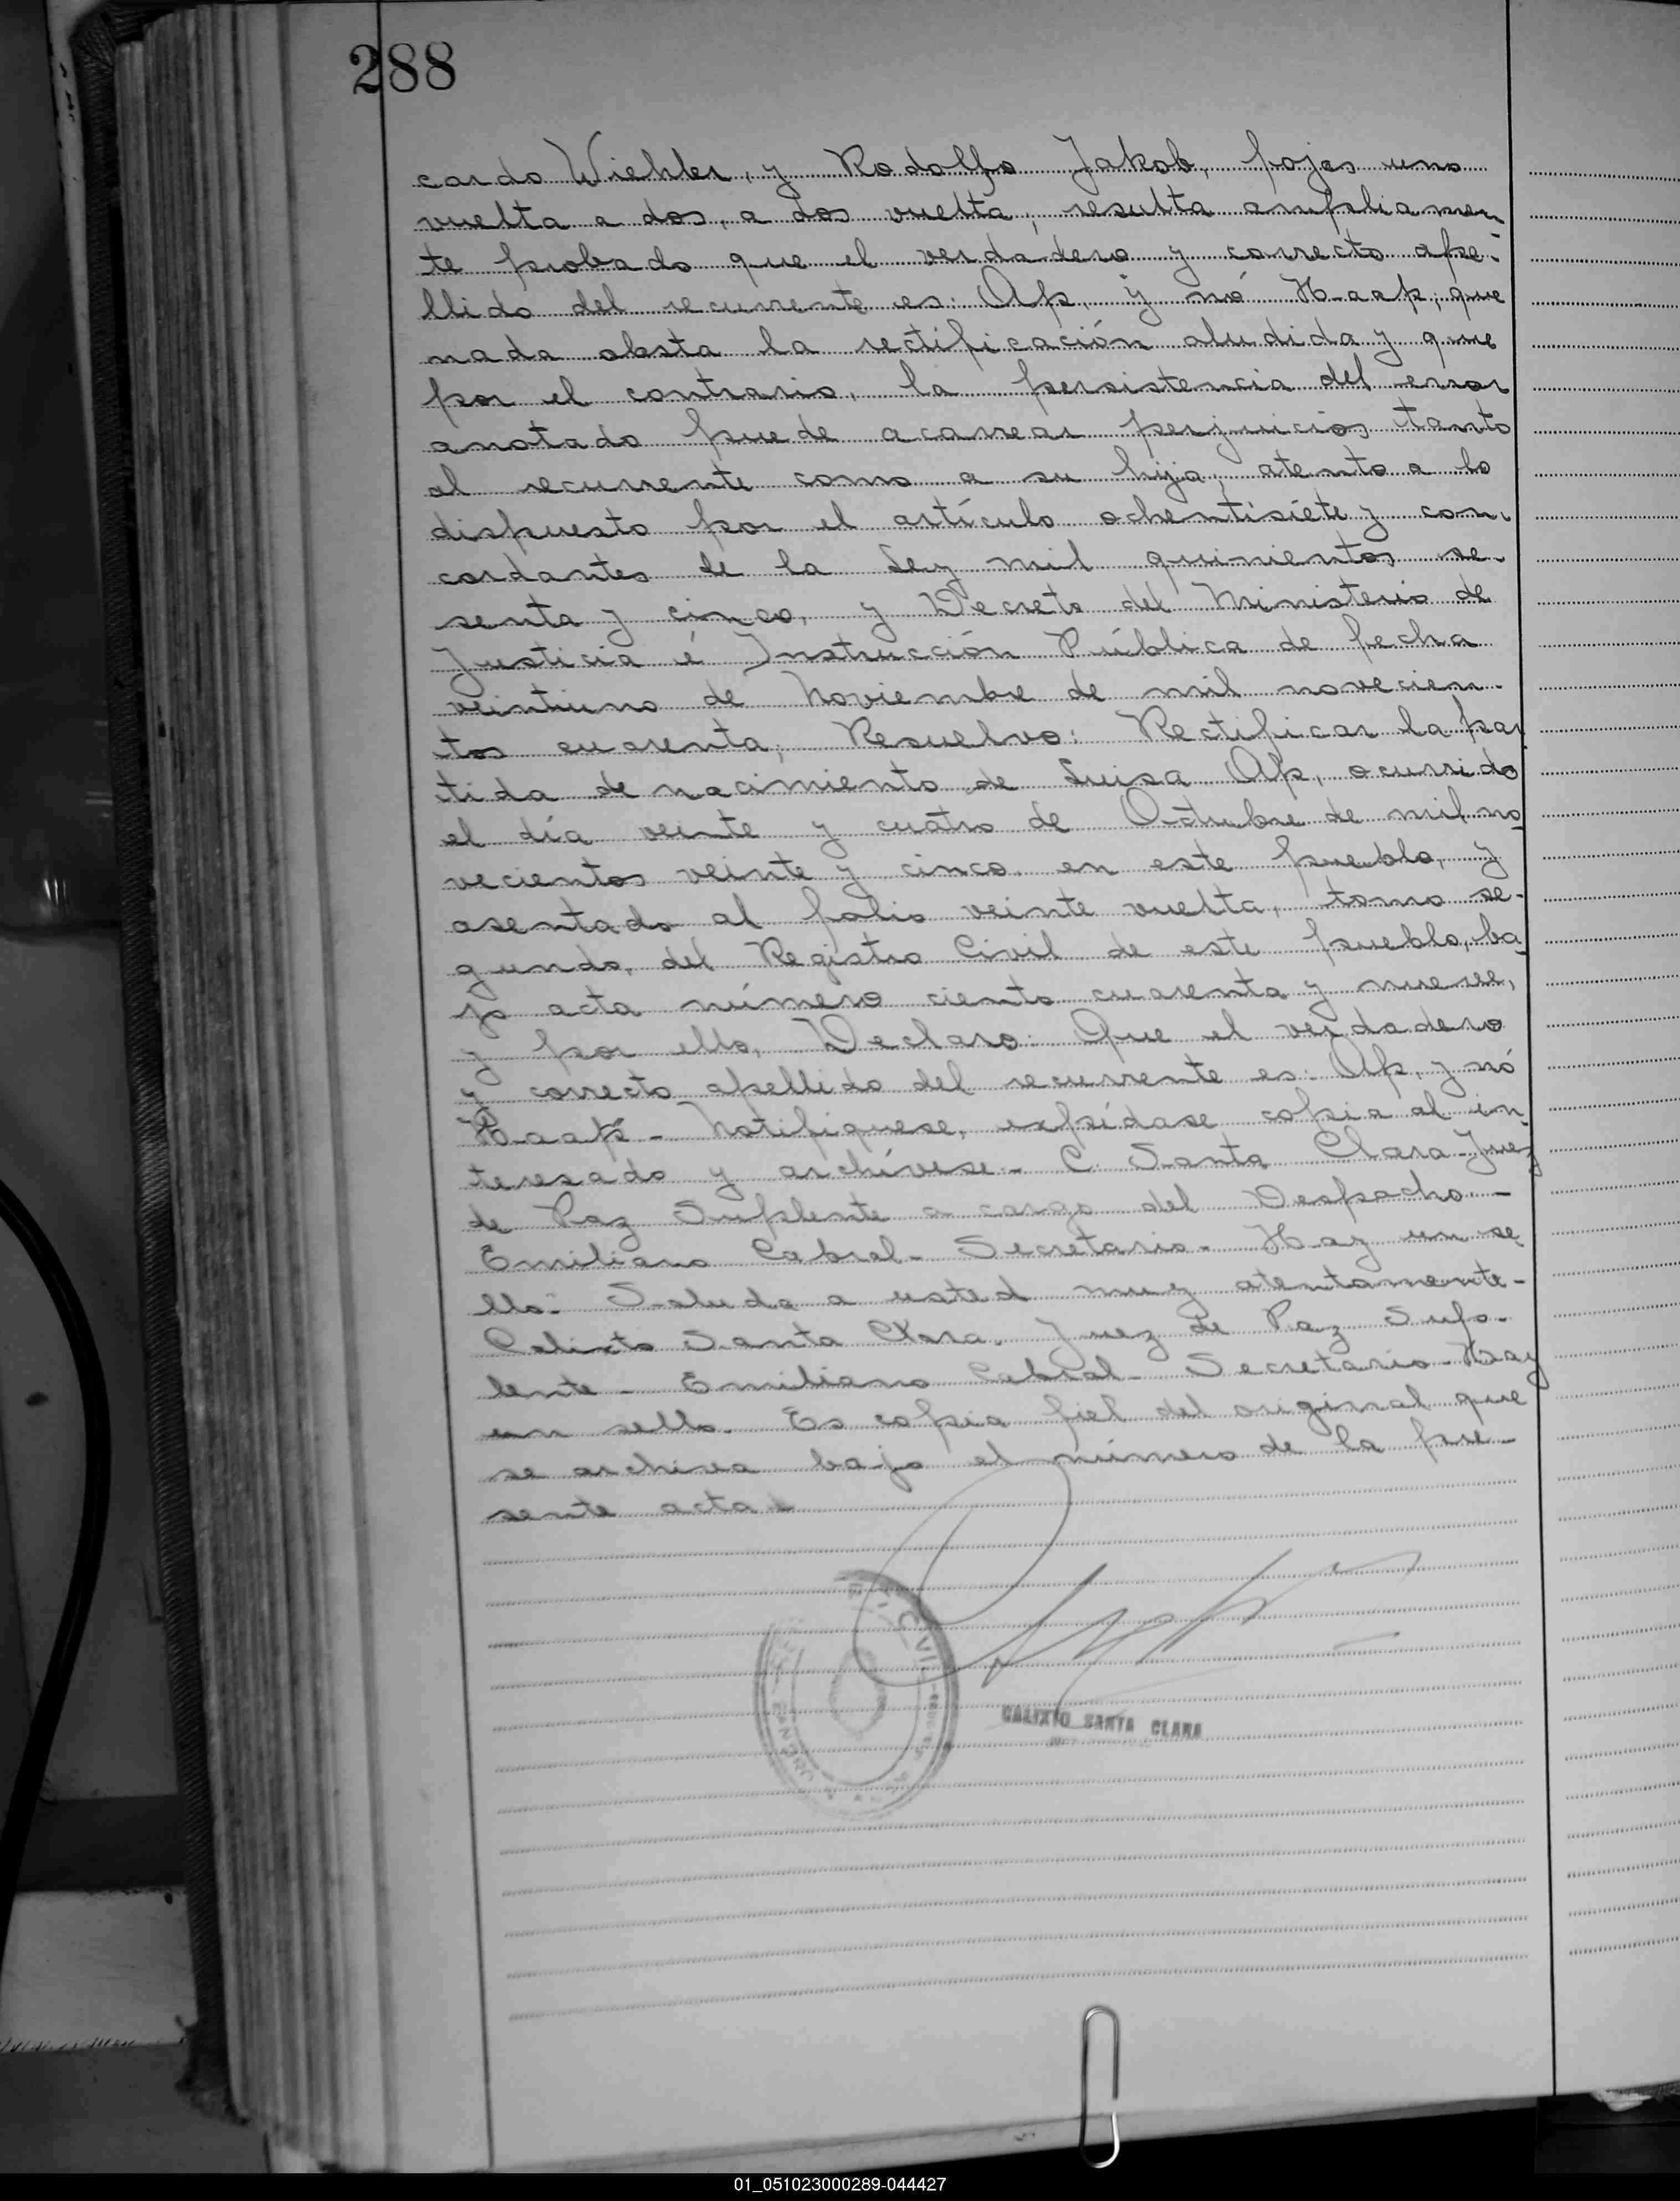 288
cardo Wiehler, y Rodolfo Jakob, fojas uno
vuelta a dos, a dos vuelta, resulta ampliamen
te probado que el verdadero y correcto ape-
llido del recurrente es: Ap, y nó Haap; que
nada obsta la rectificación aludida y que
por el contrario, la persistencia del error
anotado puede acarrear perjuicios tanto
al recurrente como a su hija, atento a lo
dispuesto por el artículo ochentisiete y con-
cordantes de la Ley mil quinientos se-
senta y cinco, y Decreto del Ministerio de
Justicia é Instrucción Pública de fecha
veintiuno de Noviembre de mil novecien-
tos cuarenta; Resuelvo: Rectificar la par
tida de nacimiento de Luisa Ap, ocurrido
el día veinte y cuatro de Octubre de mil no
vecientos veinte y cinco en este pueblo, y
asentado al folio veinte vuelta, tomo se-
gundo, del Registro Civil de este pueblo, ba
jo acta número ciento cuarenta y nueve,
y por ello, Declaro: Que el verdadero
y correcto apellido del recurrente es: Ap, y nó
Haap - Notifíquese, expídase copia al in
teresado y archívese - C. Santa Clara - Juez
de Paz Suplente a cargo del Despacho. -
Emiliano Cabral - Secretario - Hay un se
llo: Saluda a usted muy atentamente -
Calixto Santa Clara. Juez de Paz Sup-
lente - Emiliano Cabral - Secretario - Hay
un sello. Es copia fiel del original que
se archiva bajo el número de la pre-
sente acta -
CALIXTO SANTA CLARA
01_051023000289-044427